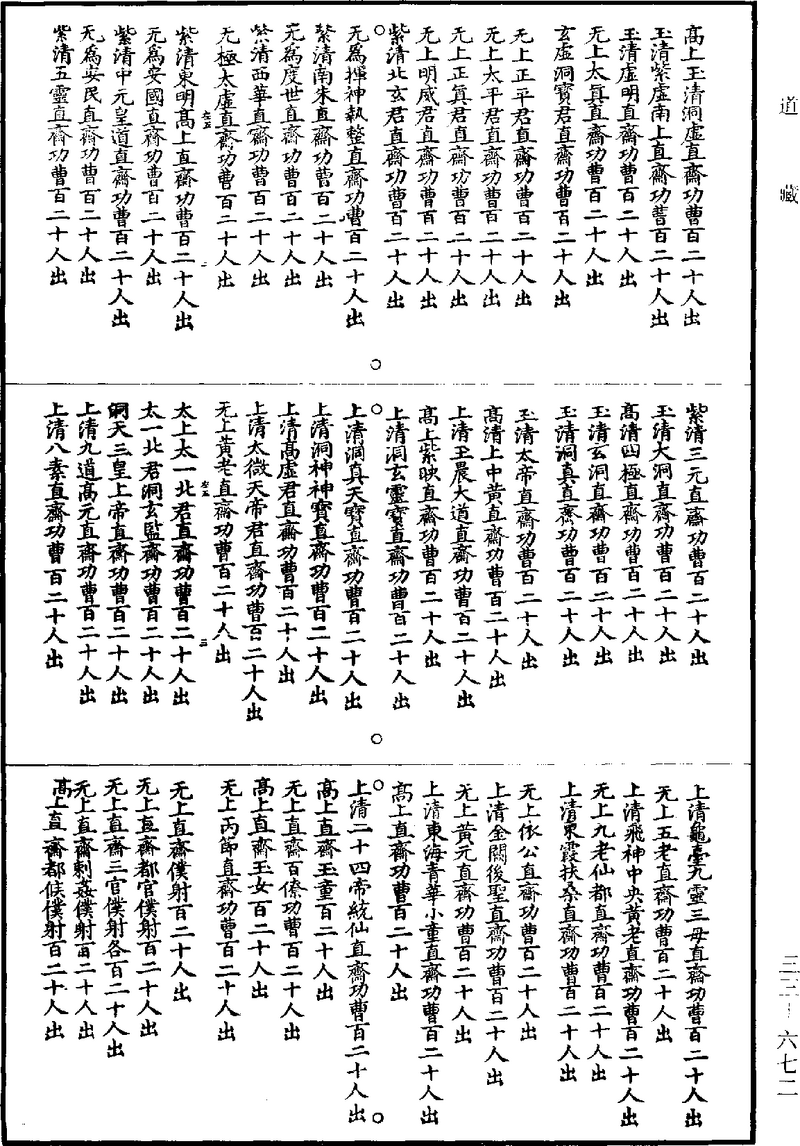 道藏
高上玉清洞虛直齋功曹百二十人出
玉清紫虛南上直齋功曹百二十人出
玉清虛明直齋功曹百二十人出
无上太真直齋功曹百二十人出
玄虛洞寶君直齋功曹百二十人出
无上正平君直齋功曹百二十人出
无上太平君直齋功曹百二十人出
无上正真君直齋功曹百二十人出
无上明威君直齋功曹百二十人出
紫清北玄君直齋功曹百二十人出
无為禪神執整直齋功曹百二十人出
紫清南朱直齋功曹百二十人出
无為度世直齋功曹百二十人出
紫清西華直齋功曹百二十人出
无極太虛直齋功曹百二十人出
紫清東明高上直齋功曹百二十人出
无為安國直齋功曹百二十人出
紫清中元皇道直齋功曹百二十人出
无為安民直齋功曹百二十人出
紫清五靈直齋功曹百二十人出
紫清三元直齋功曹百二十人出
玉清大洞直齋功曹百二十人出
高清四極直齋功曹百二十人出
玉清玄洞直齋功曹百二十人出
玉清洞真直齋功曹百二十人出
玉清太帝直齋功曹百二十人出
高清上中黃直齋功曹百二十人出
上清玉晨大道直齋功曹百二十人出
高上紫映直齋功曹百二十人出
上清洞玄靈寶直齋功曹百二十人出
上清洞真天寶直齋功曹百二十人出
上清洞神神寶直齋功曹百二十人出
上清高虛君直齋功曹百二十人出
上清太微天帝君直齋功曹百二十人出
无上黃老直齋功曹百二十人出
太上太一北君直齋功曹百二十人出
太一北君洞玄監齋功曹百二十人出
洞天三皇上帝直齋功曹百二十人出
上清九道高元直齋功曹百二十人出
上清八素直齋功曹百二十人出
上清龜臺九靈三母直齋功曹百二十人出
无上五老直齋功曹百二十人出
上清飛神中央黃老直齋功曹百二十人出
无上九老仙都直齋功曹百二十人出
上清東霞扶桑直齋功曹百二十人出
无上依公直齋功曹百二十人出
上清金闕後聖直齋功曹百二十人出
无上黃元直齋功曹百二十人出
上清東海青華小童直齋功曹百二十人出
高上直齋功曹百二十人出
上清二十四帝統仙直齋功曹百二十人出
高上直齋玉童百二十人出
无上直齋百僚功曹百二十人出
高上直齋玉女百二十人出
无上丙節直齋功曹百二十人出
无上直齋僕射百二十人出
无上直齋都官僕射百二十人出
无上直齋三官僕射各百二十人出
无上直齋刺姦僕射百二十人出
高上直齋都候僕射百二十人出
三二－六七二